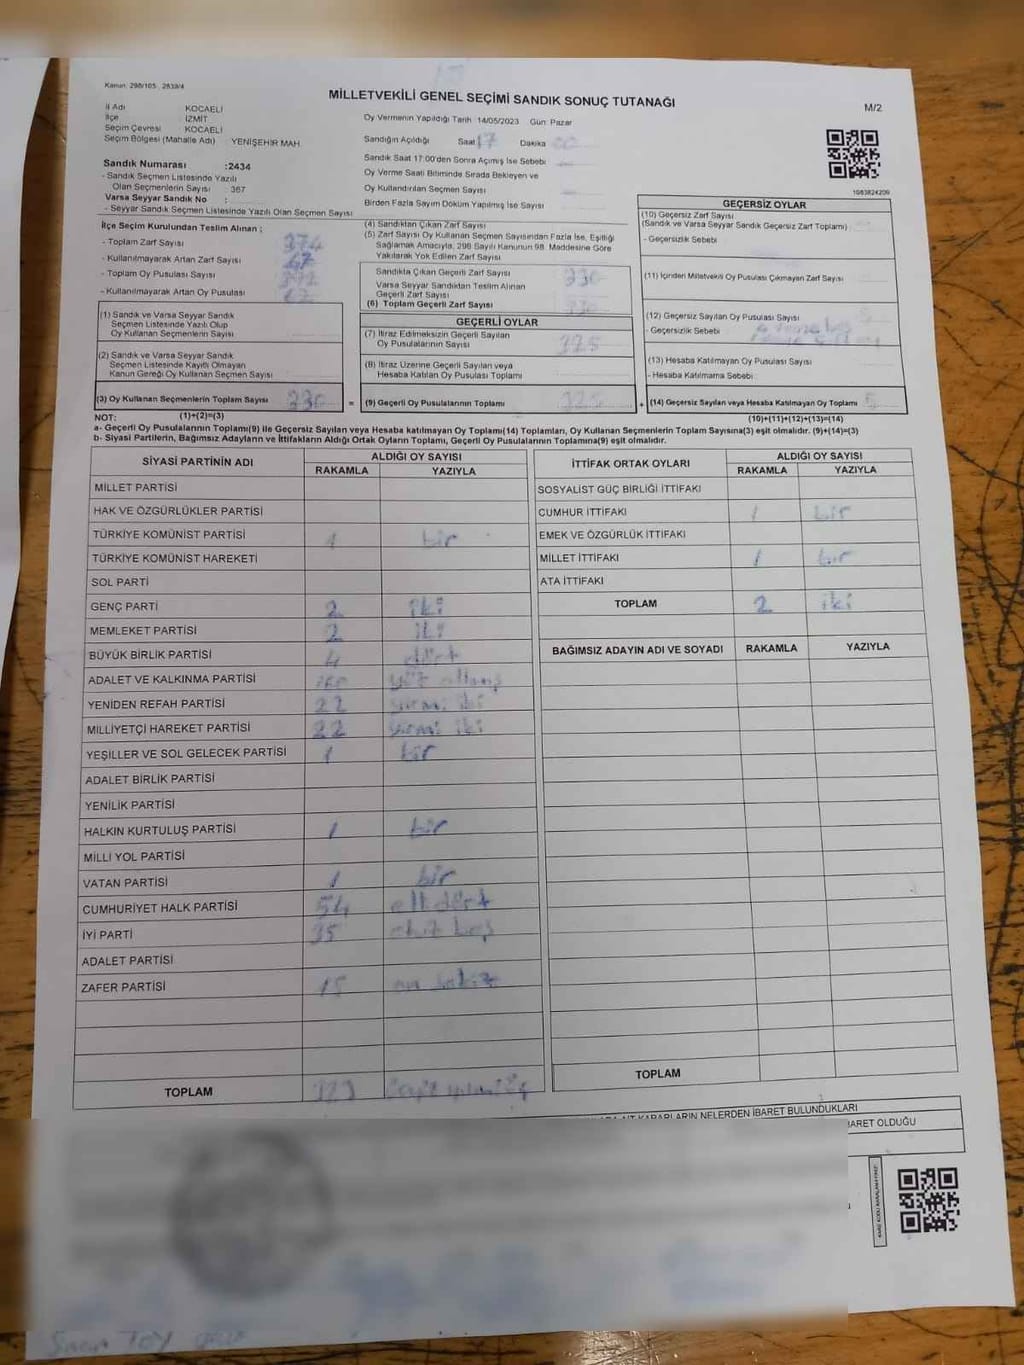 Kanun: 298/105 2839/4
MİLLETVEKİLİ GENEL SEÇİMİ SANDIK SONUÇ TUTANAĞI
M/2
İl Adı KOCAELİ
İlçe İZMİT
Seçim Çevresi KOCAELİ
Seçim Bölgesi (Mahalle Adı) YENİŞEHİR MAH.
Sandık Numarası :2434
- Sandık Seçmen Listesinde Yazılı
Olan Seçmenlerin Sayısı : 367
Varsa Seyyar Sandık No :
- Seyyar Sandık Seçmen Listesinde Yazılı Olan Seçmen Sayısı
Oy Vermenin Yapıldığı Tarih 14/05/2023 Gün: Pazar
Sandığın Açıldığı Saat 17 Dakika 00
Sandık Saat 17:00'den Sonra Açımış İse Sebebi
Oy Verme Saati Bitiminde Sırada Bekleyen ve
Oy Kullandırılan Seçmen Sayısı
Birden Fazla Sayım Döküm Yapılmış İse Sayısı
1083824209
İlçe Seçim Kurulundan Teslim Alınan ;
- Toplam Zarf Sayısı 374
- Kullanılmayarak Artan Zarf Sayısı
- Toplam Oy Pusulası Sayısı
- Kullanılmayarak Artan Oy Pusulası
(1) Sandık ve Varsa Seyyar Sandık
Seçmen Listesinde Yazılı Olup
Oy Kullanan Seçmenlerin Sayısı
(2) Sandık ve Varsa Seyyar Sandık
Seçmen Listesinde Kayıtlı Olmayan
Kanun Gereği Oy Kullanan Seçmen Sayısı
(3) Oy Kullanan Seçmenlerin Toplam Sayısı 330 =
(1)+(2)=(3)
(4) Sandıktan Çıkan Zarf Sayısı
(5) Zarf Sayısı Oy Kullanan Seçmen Sayısından Fazla İse, Eşitliği
Sağlamak Amacıyla, 298 Sayılı Kanunun 98. Maddesine Göre
Yakılarak Yok Edilen Zarf Sayısı
Sandıkta Çıkan Geçerli Zarf Sayısı 330
Varsa Seyyar Sandıktan Teslim Alınan
Geçerli Zarf Sayısı
(6) Toplam Geçerli Zarf Sayısı 330
GEÇERLİ OYLAR
(7) İtiraz Edilmeksizin Geçerli Sayılan
Oy Pusulalarının Sayısı 325
(8) İtiraz Üzerine Geçerli Sayılan veya
Hesaba Katılan Oy Pusulası Toplamı
(9) Geçerli Oy Pusulalarının Toplamı 325 +
GEÇERSİZ OYLAR
(10) Geçersiz Zarf Sayısı
(Sandık ve Varsa Seyyar Sandık Geçersiz Zarf Toplamı)
- Geçersizlik Sebebi
(11) İçinden Milletvekili Oy Pusulası Çıkmayan Zarf Sayısı
(12) Geçersiz Sayılan Oy Pusulası Sayısı 5
- Geçersizlik Sebebi
(13) Hesaba Katılmayan Oy Pusulası Sayısı
- Hesaba Katılmama Sebebi :
(14) Geçersiz Sayılan veya Hesaba Katılmayan Oy Toplamı 5
(10)+(11)+(12)+(13)=(14)
NOT:
a- Geçerli Oy Pusulalarının Toplamı(9) ile Geçersiz Sayılan veya Hesaba katılmayan Oy Toplamı(14) Toplamları, Oy Kullanan Seçmenlerin Toplam Sayısına(3) eşit olmalıdır. (9)+(14)=(3)
b- Siyasi Partilerin, Bağımsız Adayların ve İttifakların Aldığı Ortak Oyların Toplamı, Geçerli Oy Pusulalarının Toplamına(9) eşit olmalıdır.
SİYASİ PARTİNİN ADI ALDIĞI OY SAYISI
RAKAMLA YAZIYLA
MİLLET PARTİSİ
HAK VE ÖZGÜRLÜKLER PARTİSİ
TÜRKİYE KOMÜNİST PARTİSİ 1 bir
TÜRKİYE KOMÜNİST HAREKETİ
SOL PARTİ
GENÇ PARTİ 2 iki
MEMLEKET PARTİSİ 2 iki
BÜYÜK BİRLİK PARTİSİ 4 dört
ADALET VE KALKINMA PARTİSİ 160 yüz altmış
YENİDEN REFAH PARTİSİ 22 yirmi iki
MİLLİYETÇİ HAREKET PARTİSİ 22 yirmi iki
YEŞİLLER VE SOL GELECEK PARTİSİ 1 bir
ADALET BİRLİK PARTİSİ
YENİLİK PARTİSİ
HALKIN KURTULUŞ PARTİSİ 1 bir
MİLLİ YOL PARTİSİ
VATAN PARTİSİ 1 bir
CUMHURİYET HALK PARTİSİ 54 elli dört
İYİ PARTİ 35 otuz beş
ADALET PARTİSİ
ZAFER PARTİSİ 18 on sekiz
TOPLAM 323
İTTİFAK ORTAK OYLARI ALDIĞI OY SAYISI
RAKAMLA YAZIYLA
SOSYALİST GÜÇ BİRLİĞİ İTTİFAKI
CUMHUR İTTİFAKI 1 bir
EMEK VE ÖZGÜRLÜK İTTİFAKI
MİLLET İTTİFAKI 1 bir
ATA İTTİFAKI
TOPLAM 2 iki
BAĞIMSIZ ADAYIN ADI VE SOYADI RAKAMLA YAZIYLA
TOPLAM
KARARLARIN NELERDEN İBARET BULUNDUKLARI
İBARET OLDUĞU